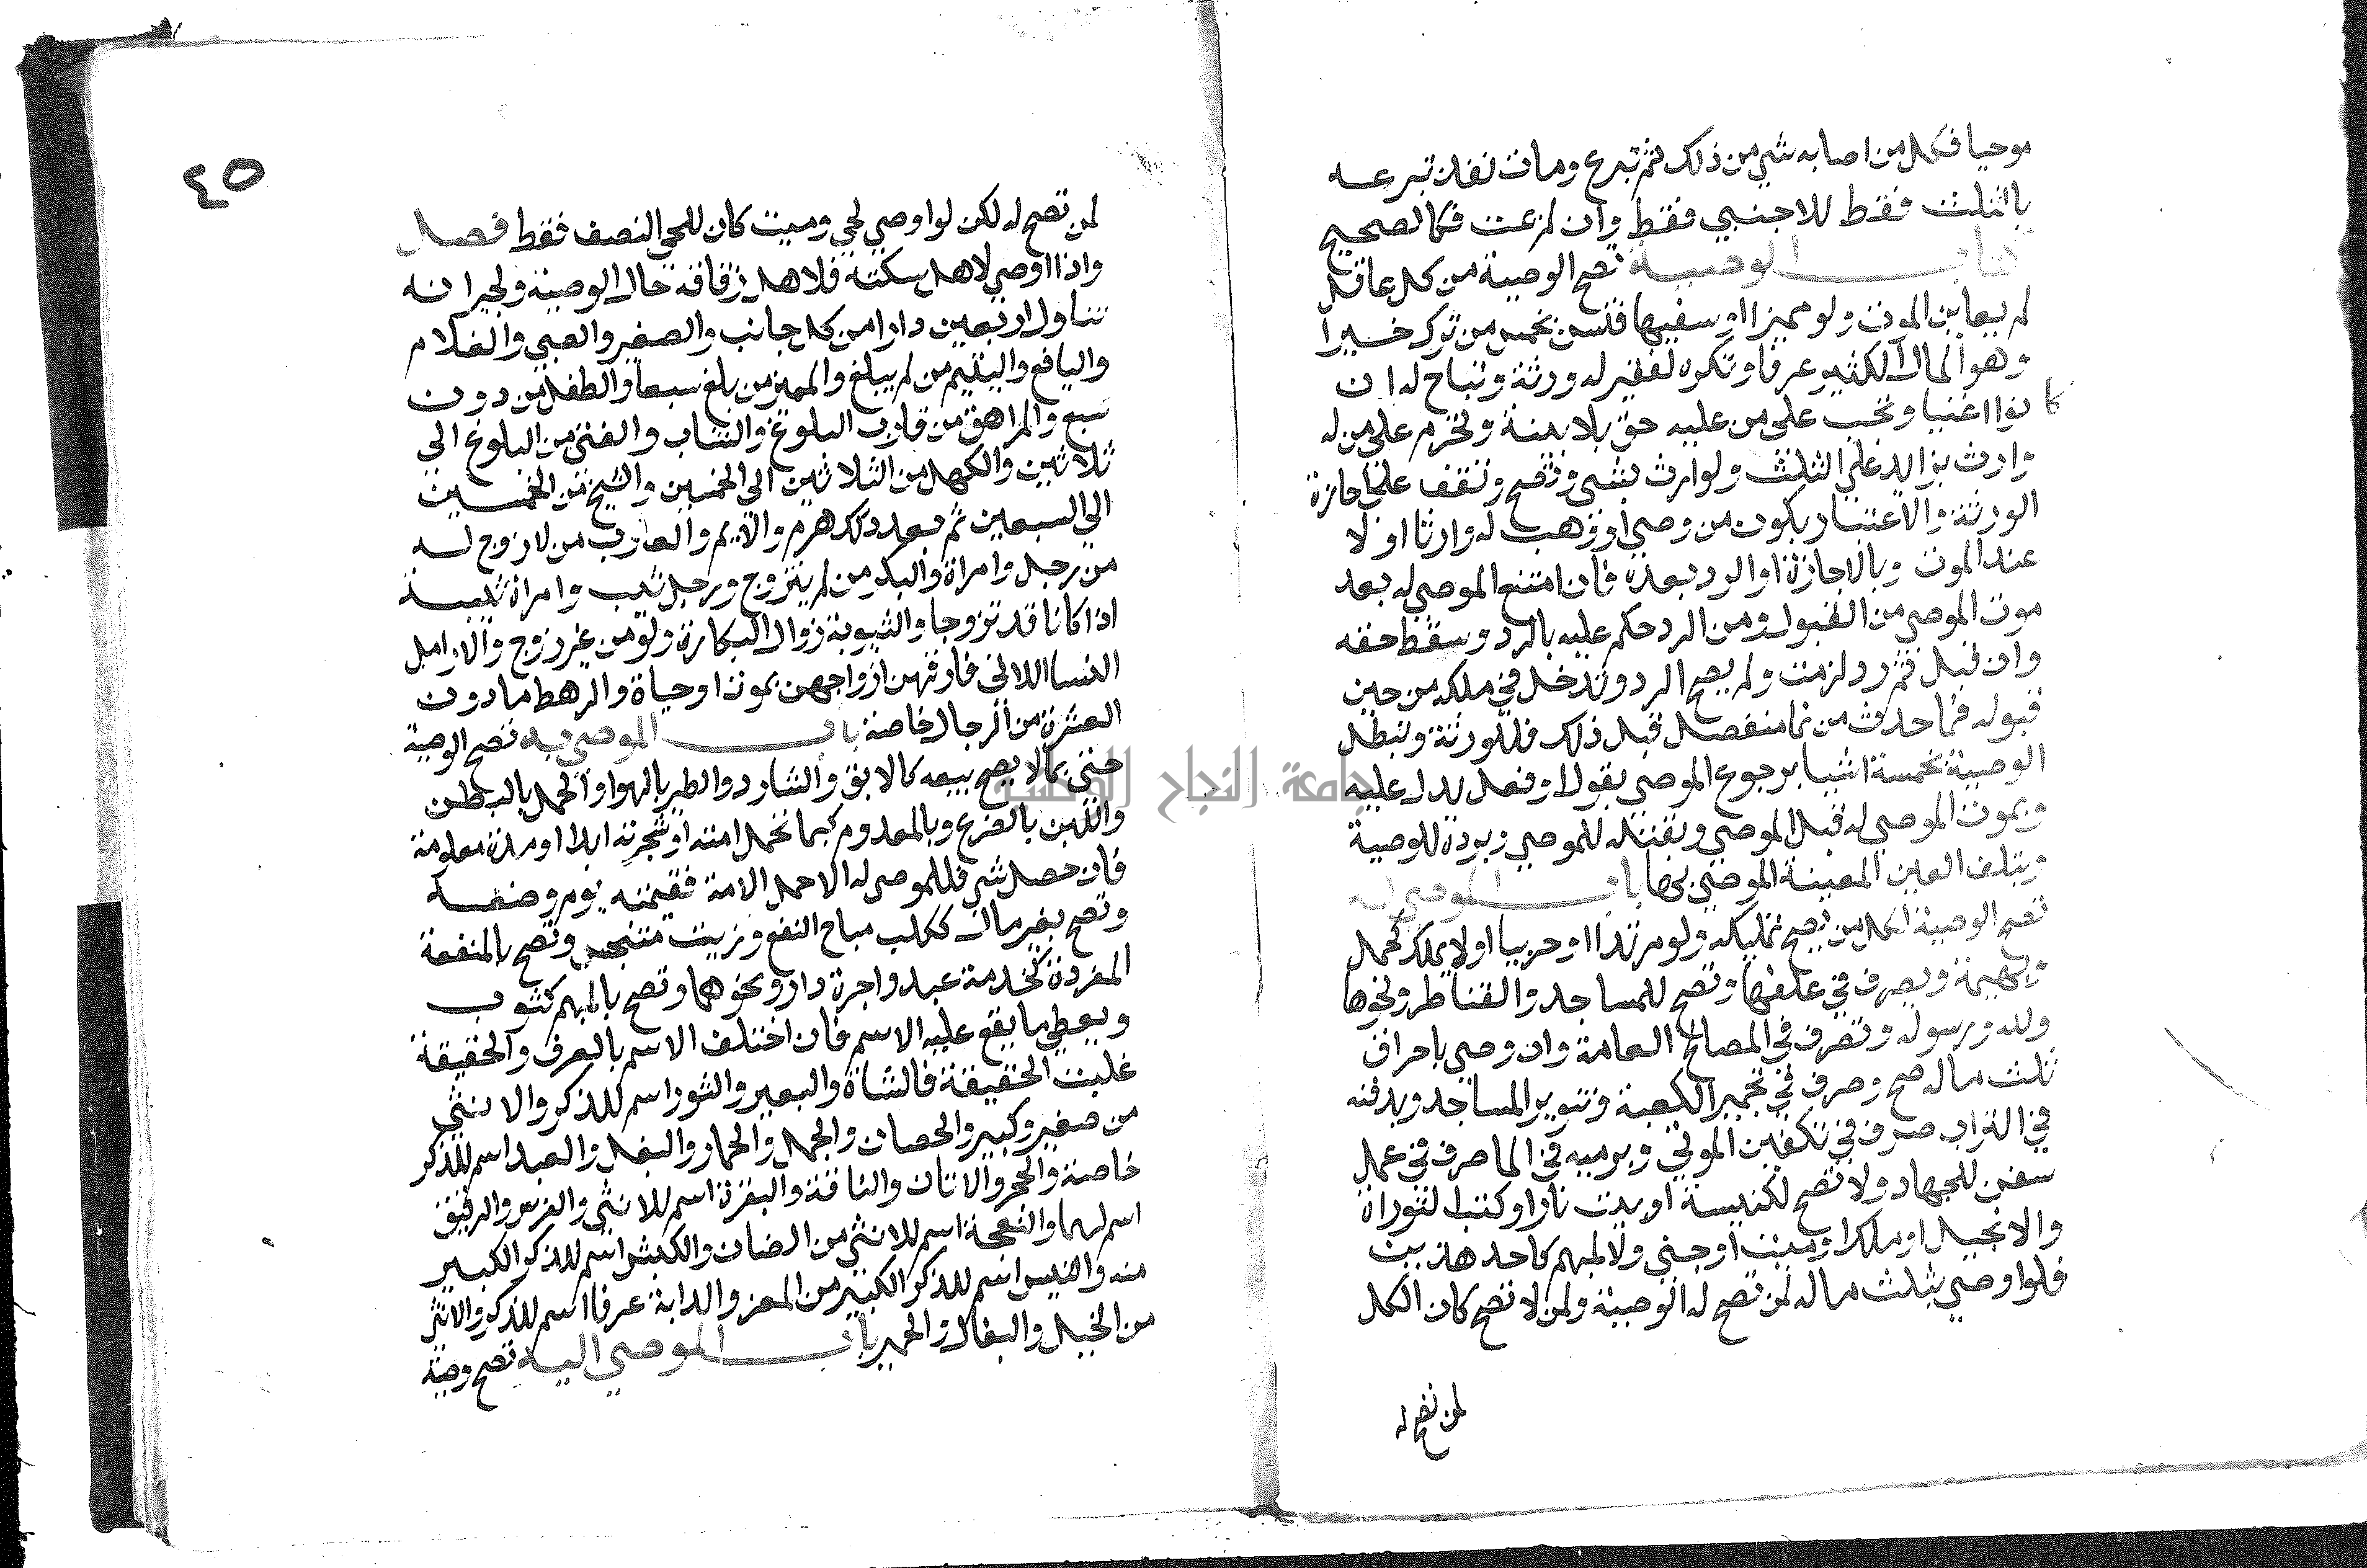 موحيا فكل من اصابه شي من ذلك ثم تبرع ومات نفذ تبرعه
بالثلث فقط للاجنبي فقط وان لم يمت فكالصحيح
كتاب الوصية تصح الوصية من كل عاقل
لم يعاين الموت ولو مميزا او سفيها فتسن بخمس من ترك خيرا
وهو المال الكثير عرفا وتكره لفقير له ورثة وتباح له ان
كا نوا اغنيا وتجب على من عليه حق بلا بينة وتحرم على من له
وارث بزايد على الثلث ولوارث بشي وتصح وتقف على اجازة
الورثة والاعتبار بكون من وصي او وهب له وارثا او لا
عند الموت وبالاجازة او الرد بعده فان امتنع الموصي له بعد
موت الموصي من القبول ومن الرد حكم عليه بالرد وسقط حقه
وان قبل ثم رد لزمت ولم يصح الرد وتدخل في ملكه من حين
قبوله فما حدث من نما منفصل قبل ذلك فللورثة وتبطل
الوصية بخمسة اشيا برجوع الموصي بقول او فعل يدل عليه
وبموت الموصي له قبل الموصي وبقتله للموصي وبرده للوصية
وبتلف العين المعينة الموصي بها باب الموصي له
تصح الوصية لكل من يصح تمليكه ولو مرتدا او حربيا او لا يملك كحمل
وبهيمة ويصرف في علفها وتصح للمساجد والقناطر ونحوها
ولله ورسوله وتصرف في المصالح العامة وان وصي باحراق
ثلث ماله صح وصرف في تجمير الكعبة وتنوير المساجد وبدفنه
في التراب صرف في تكفين الموتي وبرميه في الما صرف في عمل
سفن للجهاد ولا تصح لكنيسة او بيت نار او كتب التوراة
والانجيل او ملك او ميت او جني ولا لمبهم كاحد هذين
فلو اوصي بثلث ماله لمن تصح له الوصية ولمن لا تصح كان الكل
لمن تصح له
٤٥
لمن تصح له لكن لو اوصي لحي وميت كان للحي النصف فقط فصل
واذا اوصي لاهل سكته فلاهل زقاقه حال الوصية ولجيرانه
تناول اربعين دارا من كل جانب والصغير والصبي والغلام
واليافع واليتيم من لم يبلغ والمميز من بلغ سبعا والطفل من دون
سبع والمراهق من قارب البلوغ والشاب والفتي من البلوغ الي
ثلاثين والكهل من الثلاثين الى الخمسين والشيخ من الخمسين
الي السبعين ثم بعد ذلك هرم والايم والعازب من لا زوج له
من رجل وامراة والبكر من لم يتزوج ورجل ثيب وامراة ثيبة
اذا كانا قد تزوجا والثيوبة زوال البكارة ولو من غير زوج والارامل
النسا اللاتي فارقهن ازواجهن بموت او حياة والرهط ما دون
العشرة من الرجال خاصة باب الموصي به تصح الوصية
حتى بما لا يصح بيعه كالابق والشارد والطير بالهوا والحمل بالبطن
واللبن بالضرع وبالمعدوم كبما تحمل امته او شجرته ابدا او مدة معلومة
فان حصل شي فللموصي له الا حمل الامة فقيمته يوم وضعه
وتصح بغير مال ككلب مباح النفع وزيت متنجس وتصح بالمنفعة
المفردة كخدمة عبد واجرة دار ونحوهما وتصح بالمبهم كثوب
ويعطي ما يقع عليه الاسم فان اختلف الاسم بالعرف والحقيقة
غلبت الحقيقة فالشاة والبعير والثور اسم للذكر والانثي
من صغير وكبير والحصان والجمل والحمار والبغل والعبد اسم للذكر
خاصة والحجر والاتان والناقة والبقرة اسم للانثي والفرس والرقيق
اسم لهما والنعجة اسم للانثي من الضان والكبش اسم للذكر الكبير
منه والتيس اسم للذكر الكبير من المعز والدابة عرفا اسم للذكر والانثي
من الخيل والبغال والحمير باب الموصي اليه تصح وصية
جامعة النجاح الوطنية